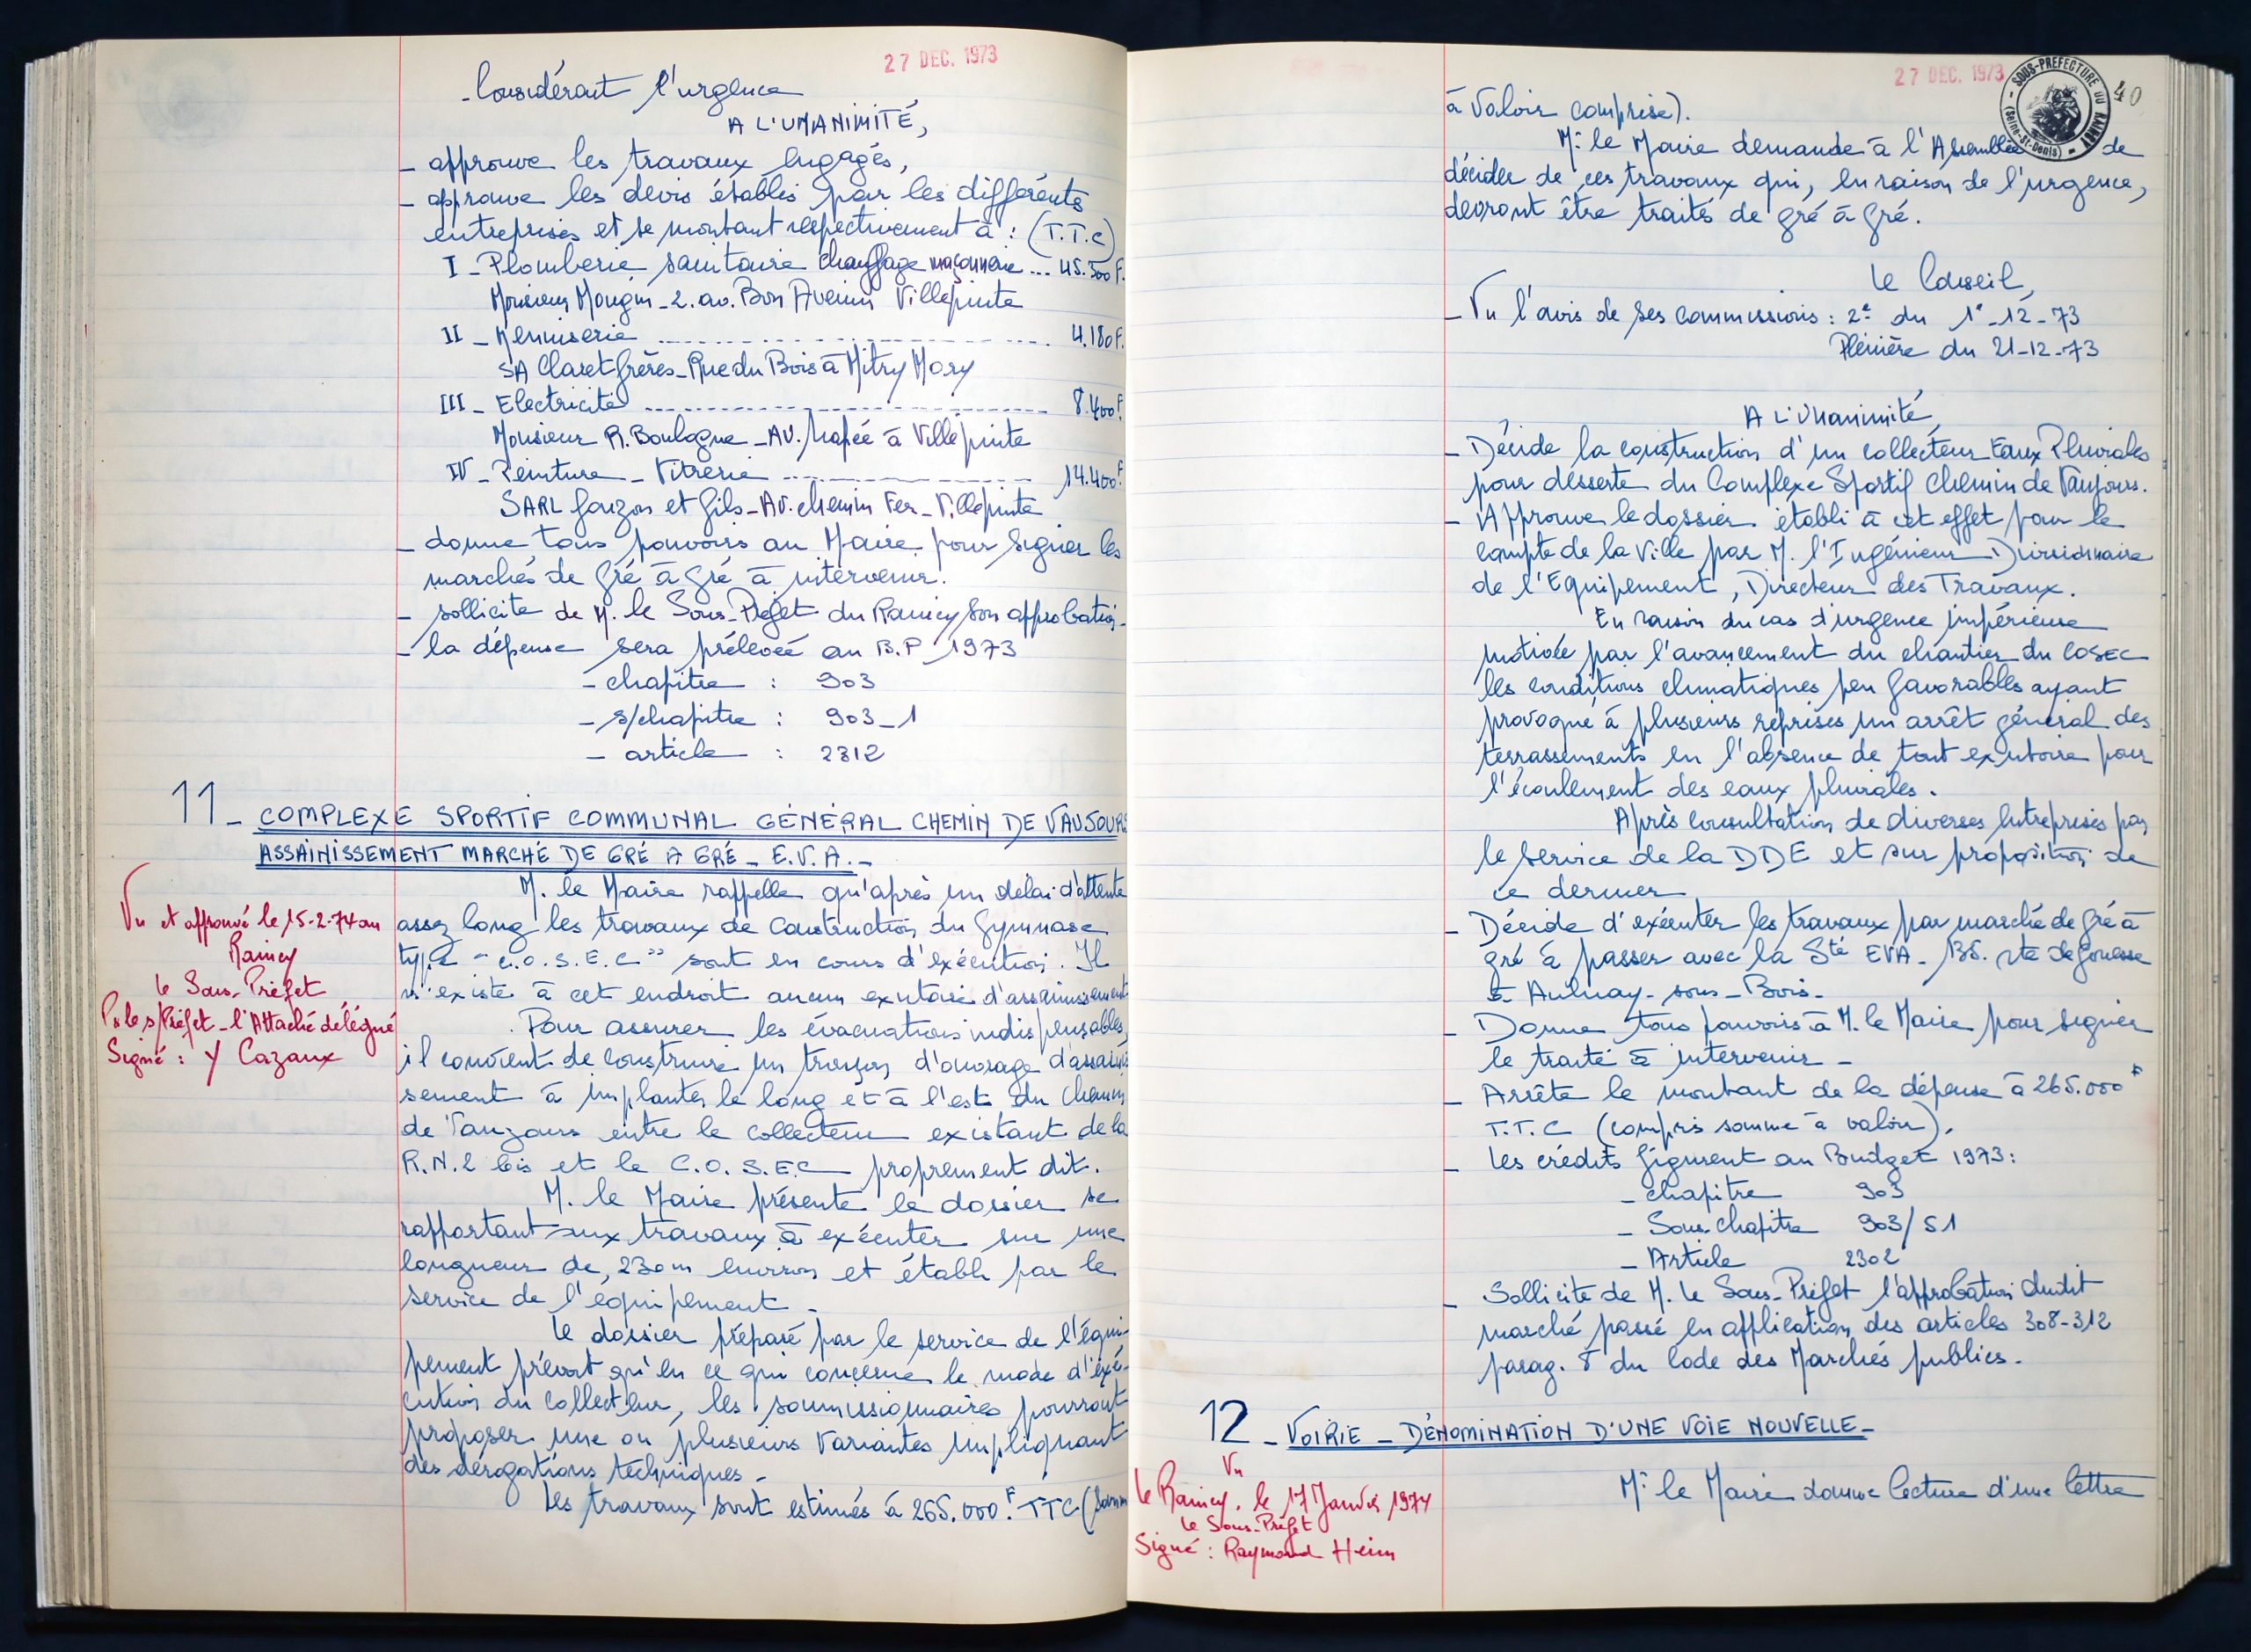 27 DEC. 1973
- Considérant l'urgence
A L'UNANIMITÉ,
- approuve les travaux engagés,
- approuve les devis établis par les différents
entreprises et se montant respectivement à : (T.T.C)
I - Plomberie sanitaire chauffage maçonnerie ... 45.300 F.
Monsieur Mougin - 2. av. Bon Avenir Villepinte
II - Menuiserie ... 4.180 F.
SA Claret frères - Rue du Bois à Mitry Mory
III - Electricité ... 8.400 F.
Monsieur R. Boulogne - AV. à Villepinte
IV - Peinture - Vitrerie ... 14.400 F
SARL Gouzon et fils - AV. chemin Fer - Villepinte
- donne tous pouvoirs au Maire pour signer les
marchés de gré à gré à intervenir.
- sollicite de M. le Sous-Préfet du Raincy son approbation -
- la dépense sera prélevée au B.P 1973
- chapitre : 903
- s/chapitre : 903-1
- article : 2312
11 - COMPLEXE SPORTIF COMMUNAL GÉNÉRAL CHEMIN DE VAUJOURS
ASSAINISSEMENT MARCHÉ DE GRÉ A GRÉ - E.V.A. -
M. le Maire rappelle qu'après un délai d'attente
assez long les travaux de construction du Gymnase
type "C.O.S.E.C" sont en cours d'exécution. Il
n'existe à cet endroit aucun exutoire d'assainissement
Pour assurer les évacuations indispensables,
il convient de construire un tronçon d'ouvrage d'assainis
sement à implanter le long et à l'est du Chemin
de Vaujours entre le collecteur existant de la
R.N.2 bis et le C.O.S.E.C proprement dit.
M. le Maire présente le dossier se
rapportant aux travaux à exécuter sur une
longueur de, 230m environ et établi par le
service de l'équipement -
Le dossier préparé par le service de l'équi-
pement prévoit qu'en ce qui concerne le mode d'exé-
cution du collecteur, les soumissionnaires pourront
proposer une ou plusieurs variantes impliquant
des dérogations techniques -
Les travaux sont estimés à 265.000 F. TTC (Somme
Vu et approuvé le 15-2-74 au
Raincy
le Sous-Préfet
P. le s/Préfet - l'Attaché délégué
Signé : Y Cazaux
27 DEC. 1973
SOUS-PREFECTURE DU RAINCY
(Seine-St-Denis)
40
à valoir comprise).
M. le Maire demande à l'Assemblée de
décider de ces travaux qui, en raison de l'urgence,
devront être traités de gré à gré.
Le Conseil,
- Vu l'avis de ses commissions : 2e du 1°-12-73
Plénière du 21-12-73
A L'Unanimité,
- Décide la construction d'un collecteur Eaux Pluviales
pour desserte du Complexe Sportif chemin de Vaujours.
- Approuve le dossier établi à cet effet pour le
compte de la Ville par M. l'Ingénieur Divisionnaire
de l'Equipement, Directeur des Travaux.
En raison du cas d'urgence impérieuse
motivée par l'avancement du chantier du COSEC
les conditions climatiques peu favorables ayant
provoqué à plusieurs reprises un arrêt général des
terrassements en l'absence de tout exutoire pour
l'écoulement des eaux pluviales.
Après consultation de diverses Entreprises par
le service de la DDE et sur proposition de
ce dernier
- Décide d'exécuter les travaux par marché de gré à
gré à passer avec la Sté EVA - rte de Gonesse
à Aulnay-sous-Bois -
- Donne tous pouvoirs à M. le Maire pour signer
le traité à intervenir -
- Arrête le montant de la dépense à 265.000 F
T.T.C (compris somme à valoir).
- Les crédits figurent au Budget 1973 :
- chapitre 903
- Sous-chapitre 903/51
- Article 2302
- Sollicite de M. le Sous-Préfet l'approbation dudit
marché passé en application des articles 308-312
parag. 8 du Code des Marchés publics.
12 - VOIRIE - DÉNOMINATION D'UNE VOIE NOUVELLE -
Vu
Le Raincy, le 17 Janvier 1974
Le Sous-Préfet
Signé : Raymond Heim
M. le Maire donne lecture d'une lettre